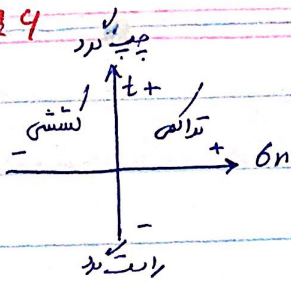 4
چپ گرد
t +
کششی
تراکمی
- + 6n
-
راست گرد